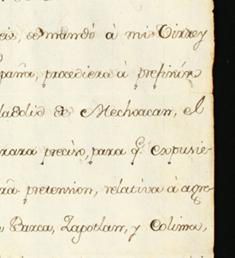 se mandó á mi Virrey
paña, procediera á prefinir
ladolid de Mechoacan, el
rara preciso, para q.e expusie-
pretension, relativa á agre-
Parca, Zapotlan, y Colima,